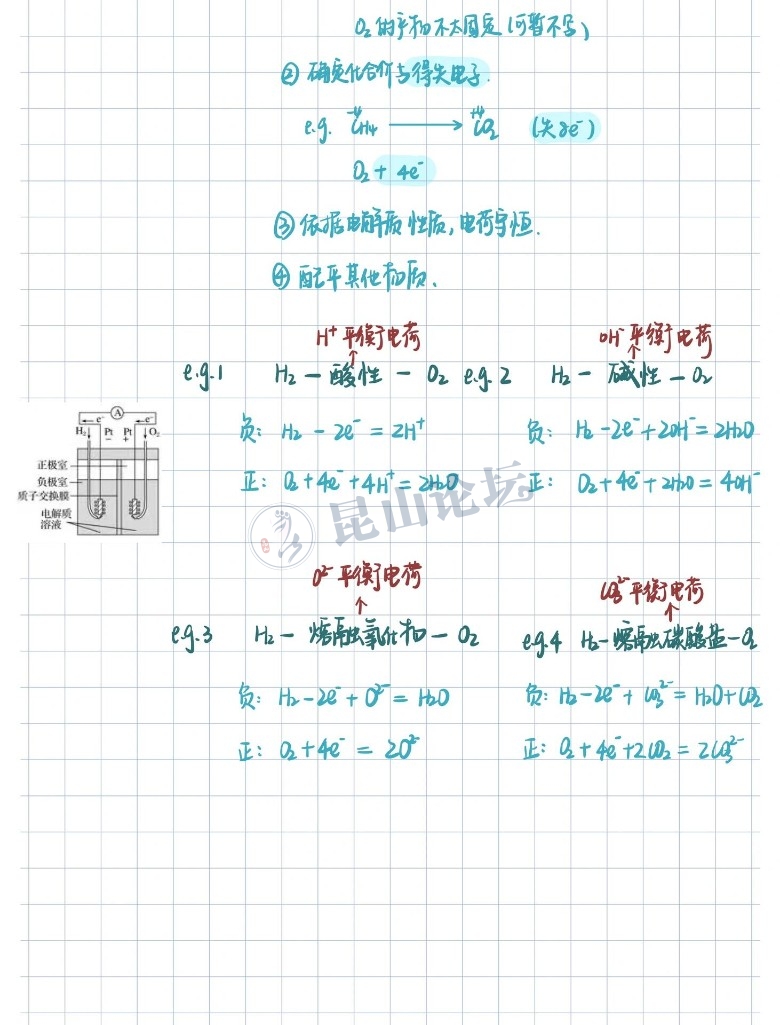 O₂的产物不太固定(可暂不写)
② 确定化合价与得失电子.
e.g. C⁻⁴H₄ ⟶ C⁺⁴O₂ (失8e⁻)
O₂ + 4e⁻
③ 依据电解质性质,电荷守恒.
④ 配平其他物质.
H⁺平衡电荷
↑
e.g.1 H₂ — 酸性 — O₂
负: H₂ - 2e⁻ = 2H⁺
正: O₂ + 4e⁻ + 4H⁺ = 2H₂O
OH⁻平衡电荷
↑
e.g.2 H₂ — 碱性 — O₂
负: H₂ - 2e⁻ + 2OH⁻ = 2H₂O
正: O₂ + 4e⁻ + 2H₂O = 4OH⁻
A
e⁻ e⁻
H₂ Pt Pt O₂
− +
正极室
负极室
质子交换膜
电解质
溶液
昆山论坛
O²⁻平衡电荷
↑
e.g.3 H₂ — 熔融氧化物 — O₂
负: H₂ - 2e⁻ + O²⁻ = H₂O
正: O₂ + 4e⁻ = 2O²⁻
CO₃²⁻平衡电荷
↑
e.g.4 H₂ — 熔融碳酸盐 — O₂
负: H₂ - 2e⁻ + CO₃²⁻ = H₂O + CO₂
正: O₂ + 4e⁻ + 2CO₂ = 2CO₃²⁻